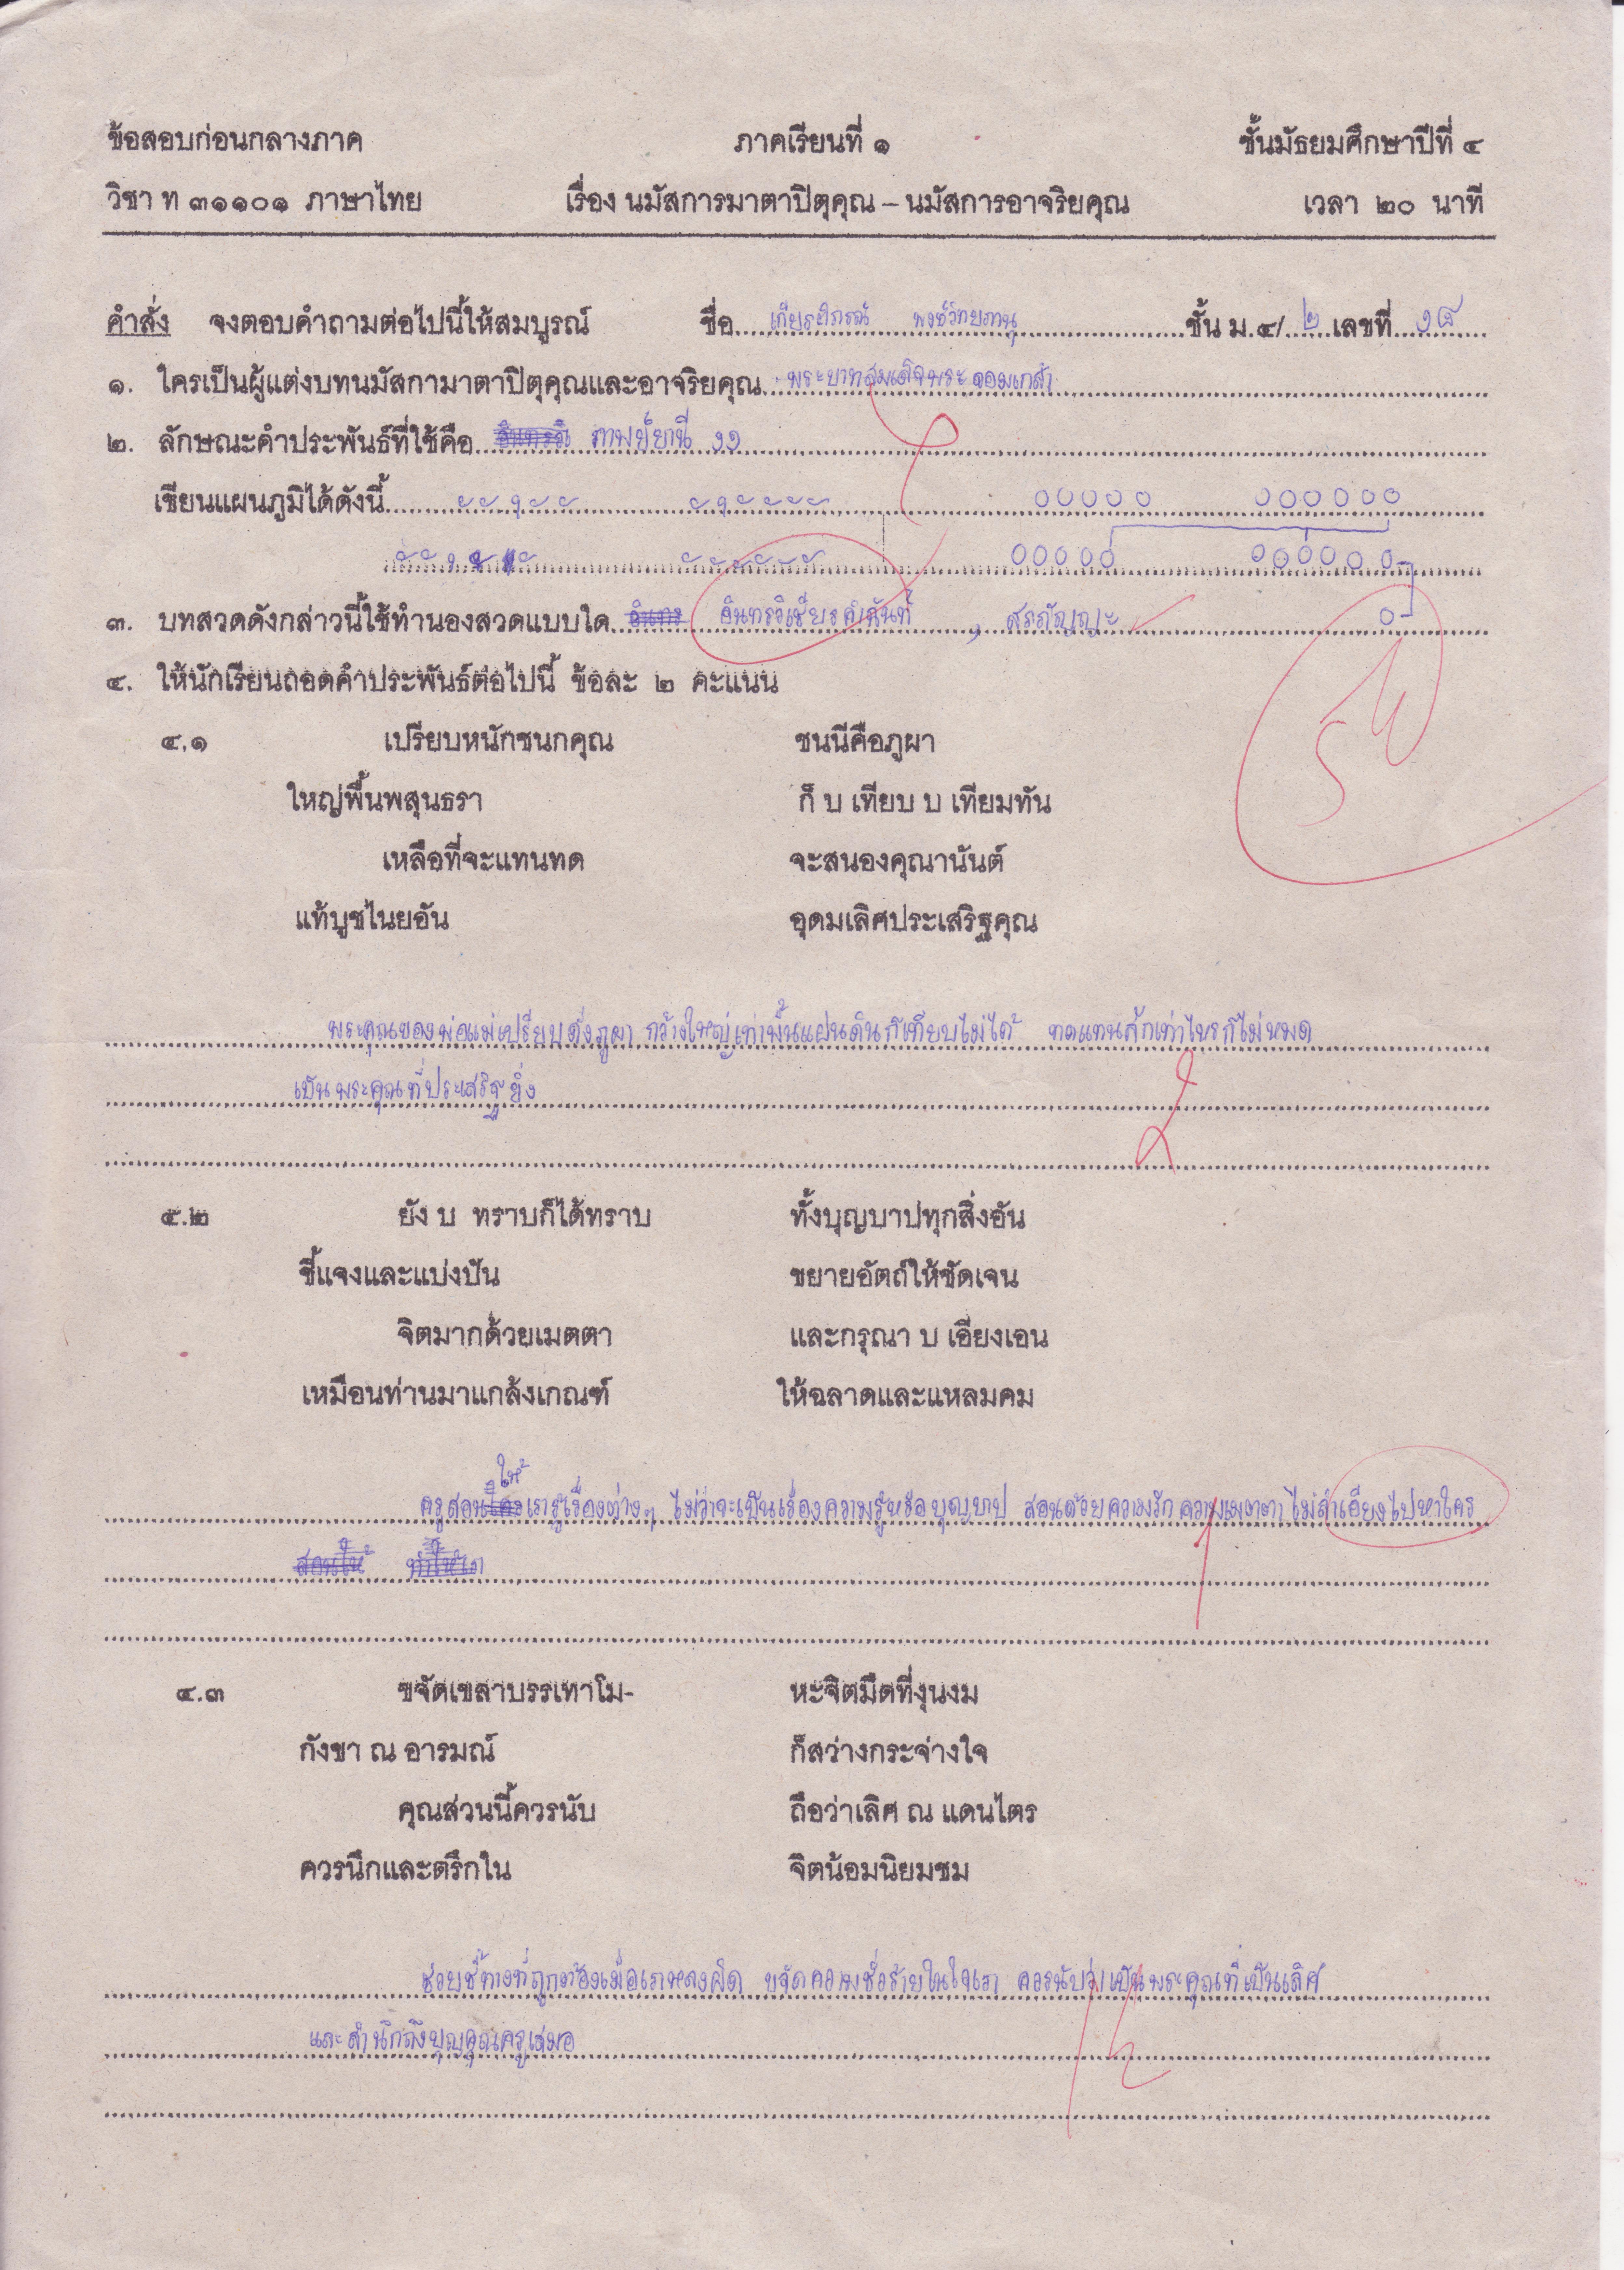 ข้อสอบก่อนกลางภาค ภาคเรียนที่ ๑ ชั้นมัธยมศึกษาปีที่ ๔
วิชา ท ๓๑๑๐๑ ภาษาไทย เรื่อง นมัสการมาตาปิตุคุณ – นมัสการอาจริยคุณ เวลา ๒๐ นาที
คำสั่ง จงตอบคำถามต่อไปนี้ให้สมบูรณ์ ชื่อ ชั้น ม.๔/ ๒ เลขที่ ๑๘
๑. ใครเป็นผู้แต่งบทนมัสกามาตาปิตุคุณและอาจริยคุณ พระบาทสมเด็จพระจอมเกล้า
๒. ลักษณะคำประพันธ์ที่ใช้คือ กาพย์ยานี ๑๑
เขียนแผนภูมิได้ดังนี้
๓. บทสวดดังกล่าวนี้ใช้ทำนองสวดแบบใด อินทรวิเชียรฉันท์ , สรภัญญะ
๔. ให้นักเรียนถอดคำประพันธ์ต่อไปนี้ ข้อละ ๒ คะแนน
๔.๑ เปรียบหนักชนกคุณ ชนนีคือภูผา
ใหญ่พื้นพสุนธรา ก็ บ เทียบ บ เทียมทัน
เหลือที่จะแทนทด จะสนองคุณานันต์
แท้บูชไนยอัน อุดมเลิศประเสริฐคุณ
พระคุณของพ่อแม่เปรียบดั่งภูผา กว้างใหญ่เท่าพื้นแผ่นดินก็เทียบไม่ได้ ทดแทนสักเท่าไหร่ก็ไม่หมด
เป็นพระคุณที่ประเสริฐยิ่ง
๔.๒ ยัง บ ทราบก็ได้ทราบ ทั้งบุญบาปทุกสิ่งอัน
ชี้แจงและแบ่งปัน ขยายอัตถ์ให้ชัดเจน
จิตมากด้วยเมตตา และกรุณา บ เอียงเอน
เหมือนท่านมาแกล้งเกณฑ์ ให้ฉลาดและแหลมคม
ครูสอนให้เรารู้เรื่องต่างๆ ไม่ว่าจะเป็นเรื่องความรู้หรือบุญบาป สอนด้วยความรัก ความเมตตา ไม่ลำเอียงไปหาใคร
๔.๓ ขจัดเขลาบรรเทาโม- หะจิตมืดที่งุนงม
กังขา ณ อารมณ์ ก็สว่างกระจ่างใจ
คุณส่วนนี้ควรนับ ถือว่าเลิศ ณ แดนไตร
ควรนึกและตรึกใน จิตน้อมนิยมชม
ช่วยชี้ทางที่ถูกต้องเมื่อเราหลงผิด ขจัดความชั่วร้ายในใจเรา ควรนับว่าเป็นพระคุณที่เป็นเลิศ
และสำนึกถึงบุญคุณครูเสมอ